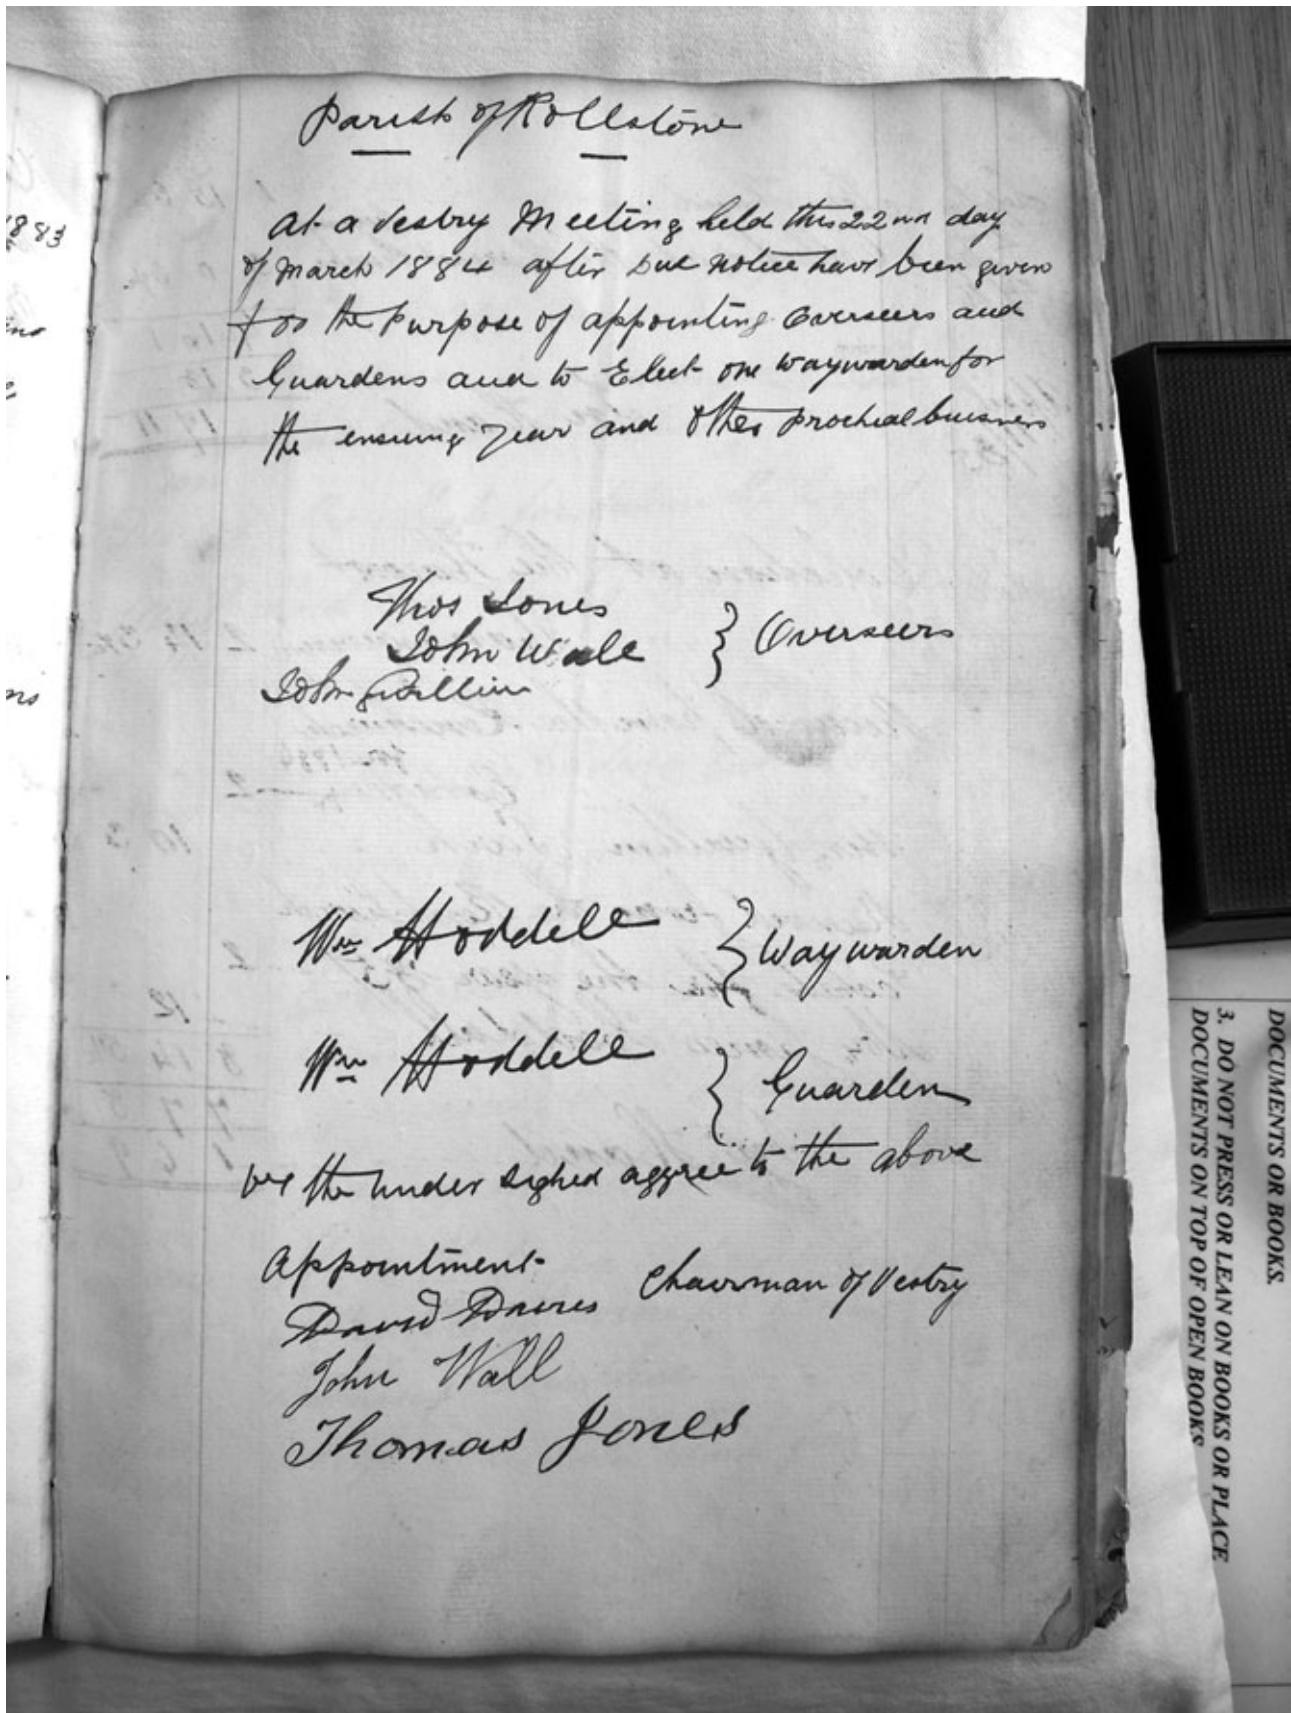 Parish of Rollstone
At a Vestry Meeting held this 22nd day
of March 1884 after Due notice have been given
for the Purpose of appointing Overseers and
Guardens and to Elect one Waywarden for
the ensuing year and other prochial buisness
Thos Jones
John Wale } Overseers
John Gwillim
Wm Hoddell } Waywarden
Wm Hoddell } Guarden
We the under signed aggree to the above
Appointment
David Davies Chairman of Vestry
John Wall
Thomas Jones
1883
DOCUMENTS OR BOOKS.
3. DO NOT PRESS OR LEAN ON BOOKS OR PLACE
DOCUMENTS ON TOP OF OPEN BOOKS